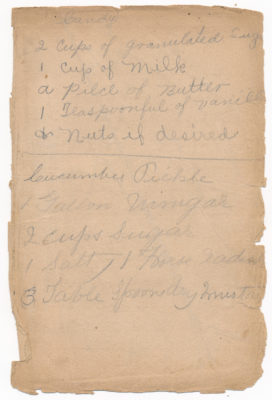 Candy
2 Cups of granulated Sug
1 Cup of Milk
a Piece of Butter
1 Teaspoonful of Vanill
& Nuts if desired
Cucumber Pickle
1 Gallon Vinegar
2 Cups Sugar
1 Salt, 1 Horse radis
3 Table Spoons dry Must